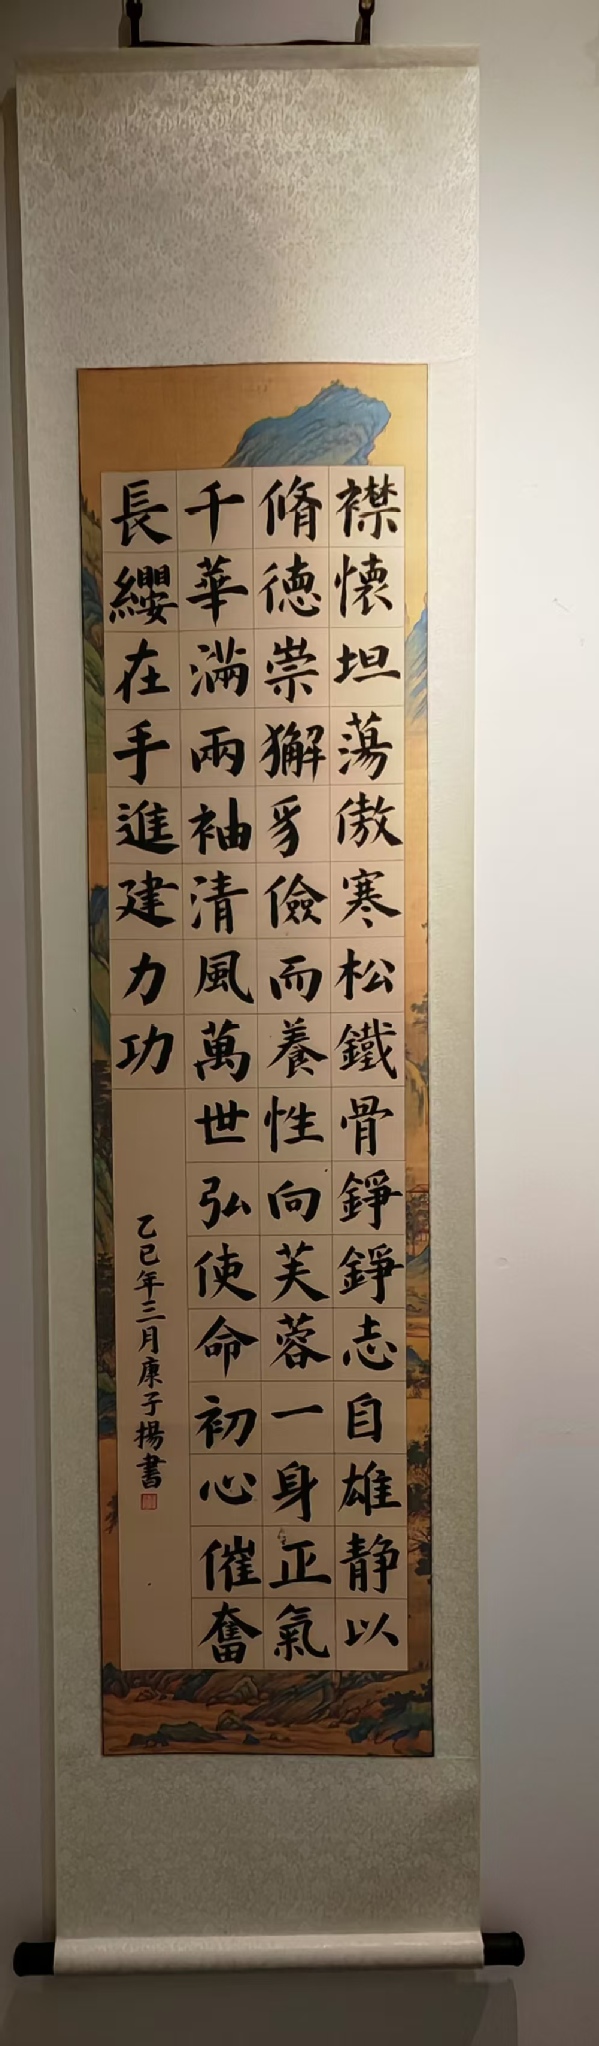 襟懷坦蕩傲寒松鐵骨錚錚志自雄静以
脩德崇獬豸儉而養性向芙蓉一身正氣
千華滿兩袖清風萬世弘使命初心催奮
長纓在手進建力功
乙巳年三月康子揚書